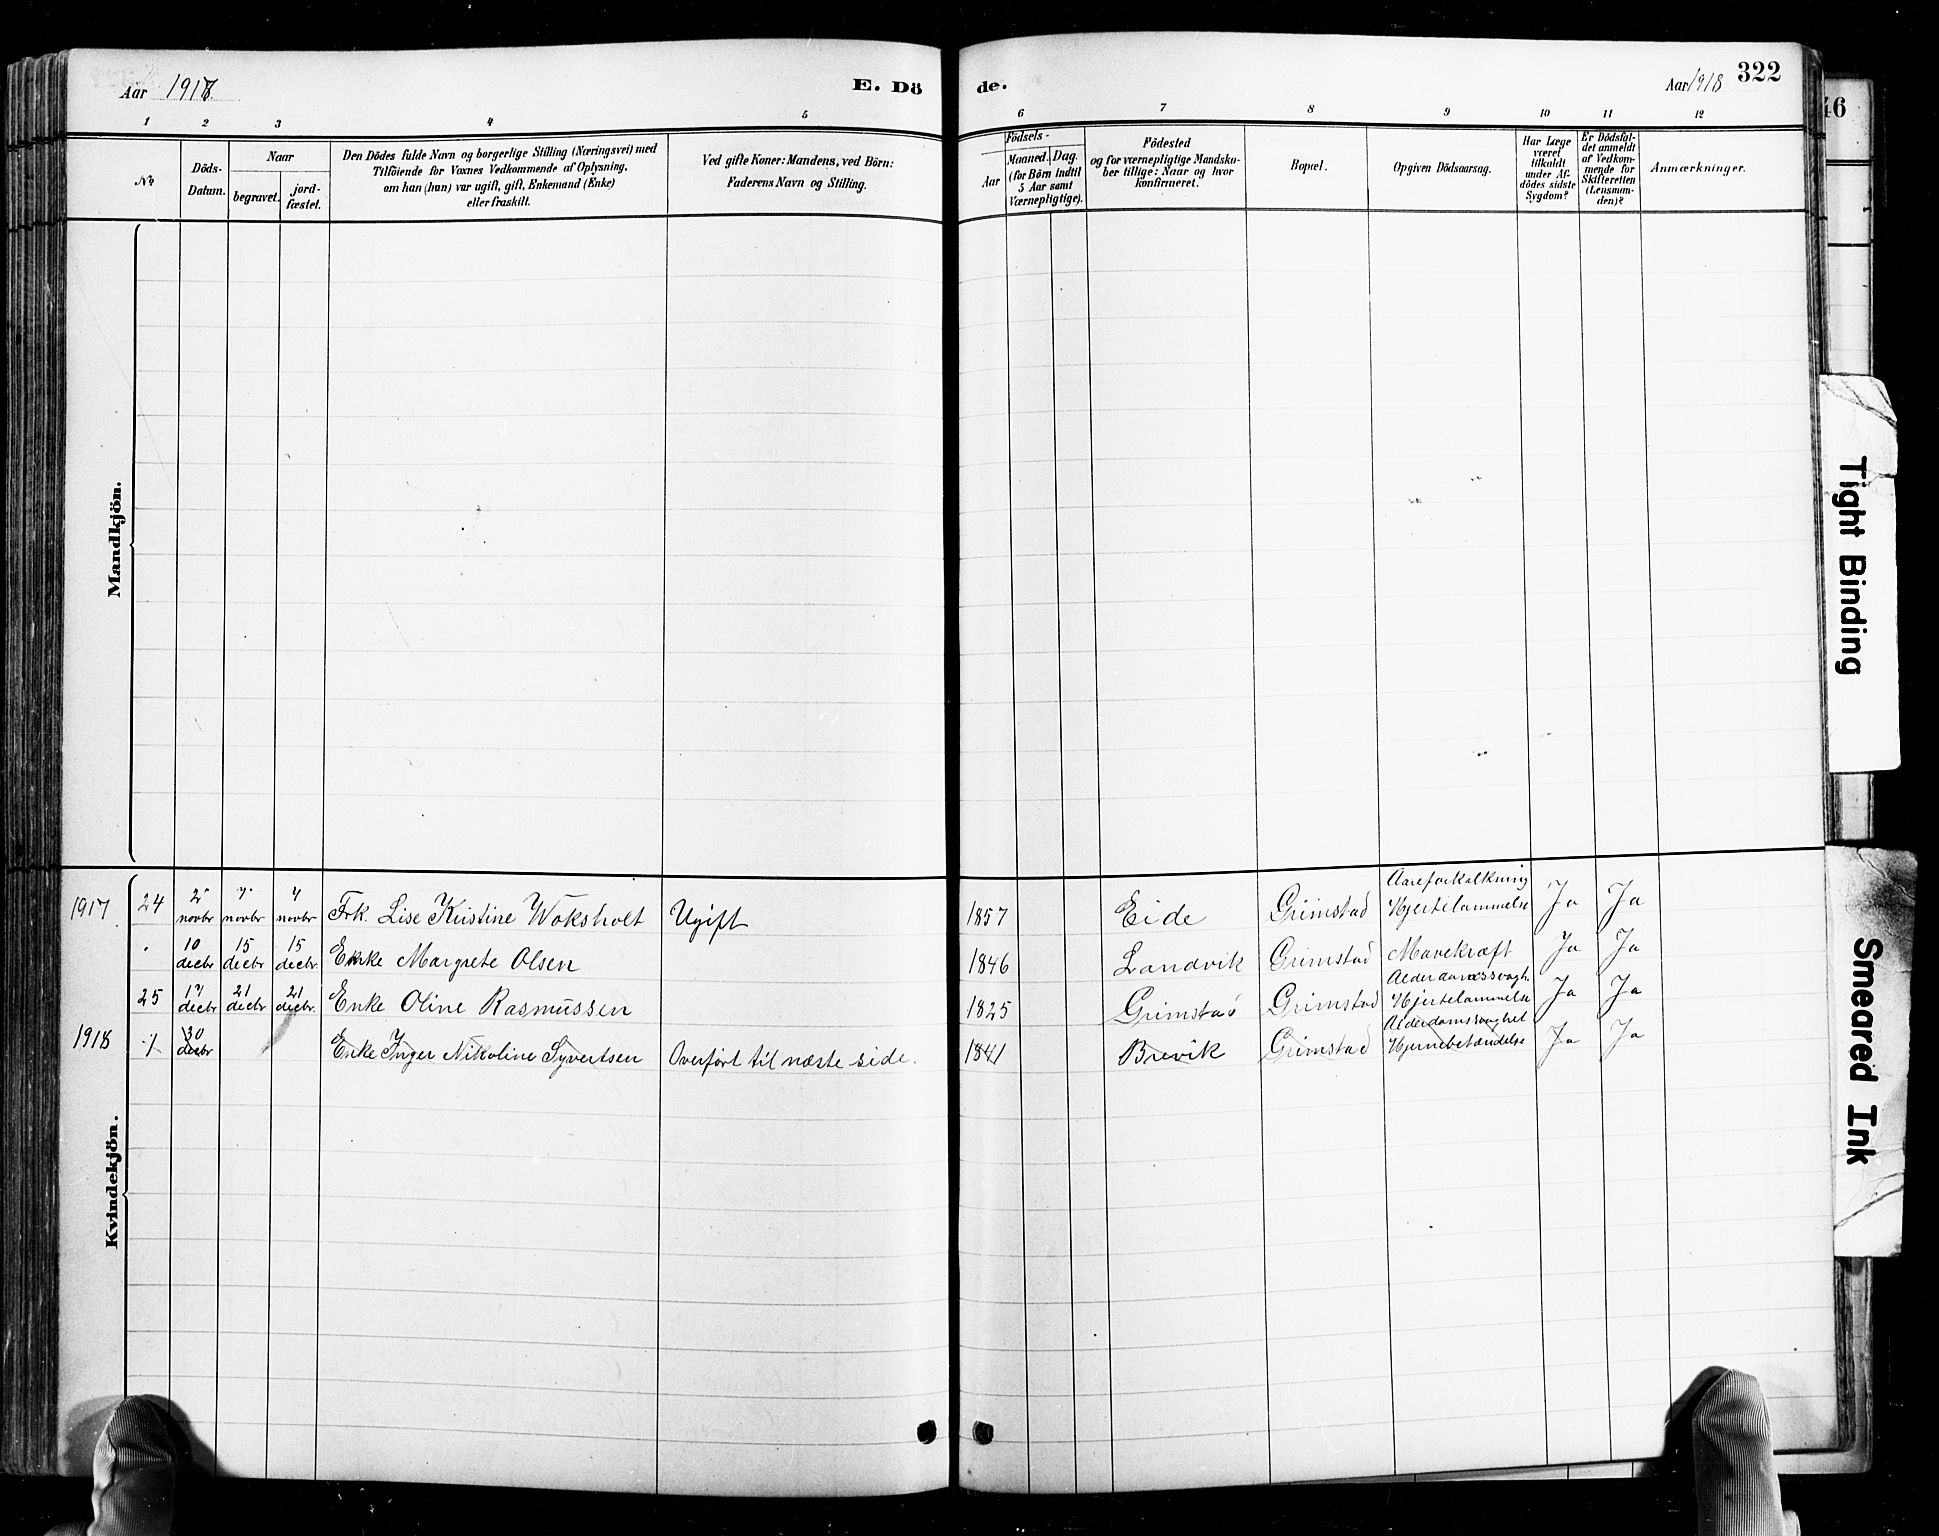 Aar 1918. E. Dö de. Aar 1918 322
1 2 3 4 5 6 7 8 9 10 11 12
No
Döds-
Datum.
Naar
begravet.
jord-
fæstet.
Den Dödes fulde Navn og borgerlige Stilling (Næringsvei) med
Tilföiende for Voxnes Vedkommende af Oplysning,
om han (hun) var ugift, gift, Enkemand (Enke)
eller fraskilt.
Ved gifte Koner: Mandens, ved Börn:
Faderens Navn og Stilling.
Födsels-
Aar
Maaned. Dag.
(for Börn indtil
5 Aar samt
Værnepligtige).
Födested
og for værnepligtige Mandsku-
ber tillige: Naar og hvor
konfirmeret.
Bopæl.
Opgiven Dödsaarsag.
Har Læge
været
tilkaldt
under Af-
dödes sidste
Sygdom?
Er Dödsfal-
det anmeldt
af Vedkom-
mende for
Skifteretten
(Lensman-
den)?
Anmærkninger.
Mandkjön.
Kvindekjön.
1917 24 2 novbr 7 novbr 7 novbr Frk. Lise Kristine Woksholt Ugift 1857 Eide Grimstad Aareforkalkning Hjertelammelse Ja Ja
10 decbr 15 decbr 15 decbr. Enke Margrete Olsen 1846 Landvik Grimstad Mavekræft Ja Ja
25 17 decbr 21 decbr 21 decbr. Enke Oline Rasmussen 1825 Grimstad Grimstad Alderdomssvagh. Hjertelammelse Ja Ja
1918 1 30 decbr Enke Inger Nikoline Syvertsen Overført til næste side. 1841 Brevik Grimstad Alderdomssvaghet Hjernebetændelse Ja Ja
46
Tight Binding
Smeared Ink